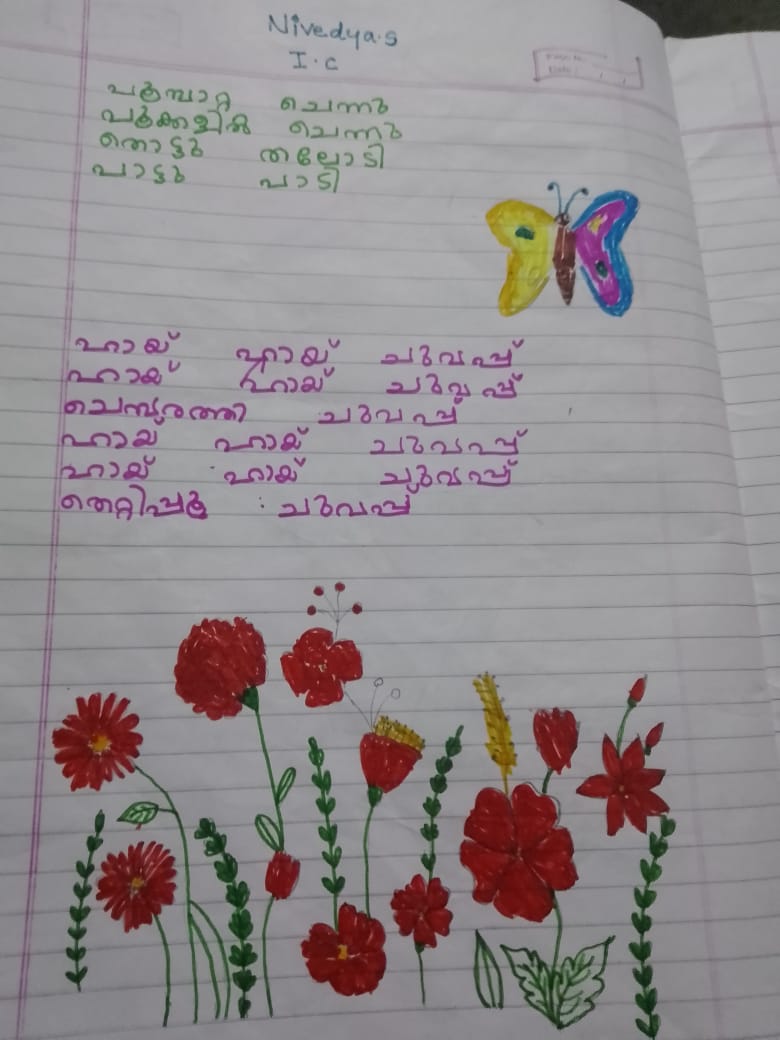 Nivedya.s
I.c
പൂമ്പാറ്റ ചെന്നു
പൂക്കളിൽ ചെന്നു
തൊട്ടു തലോടി
പാട്ടു പാടി
ഹായ് ഹായ് ചുവപ്പ്
ഹായ് ഹായ് ചുവപ്പ്
ചെമ്പരത്തി ചുവപ്പ്
ഹായ് ഹായ് ചുവപ്പ്
ഹായ് ഹായ് ചുവപ്പ്
തെറ്റിപ്പൂ : ചുവപ്പ്